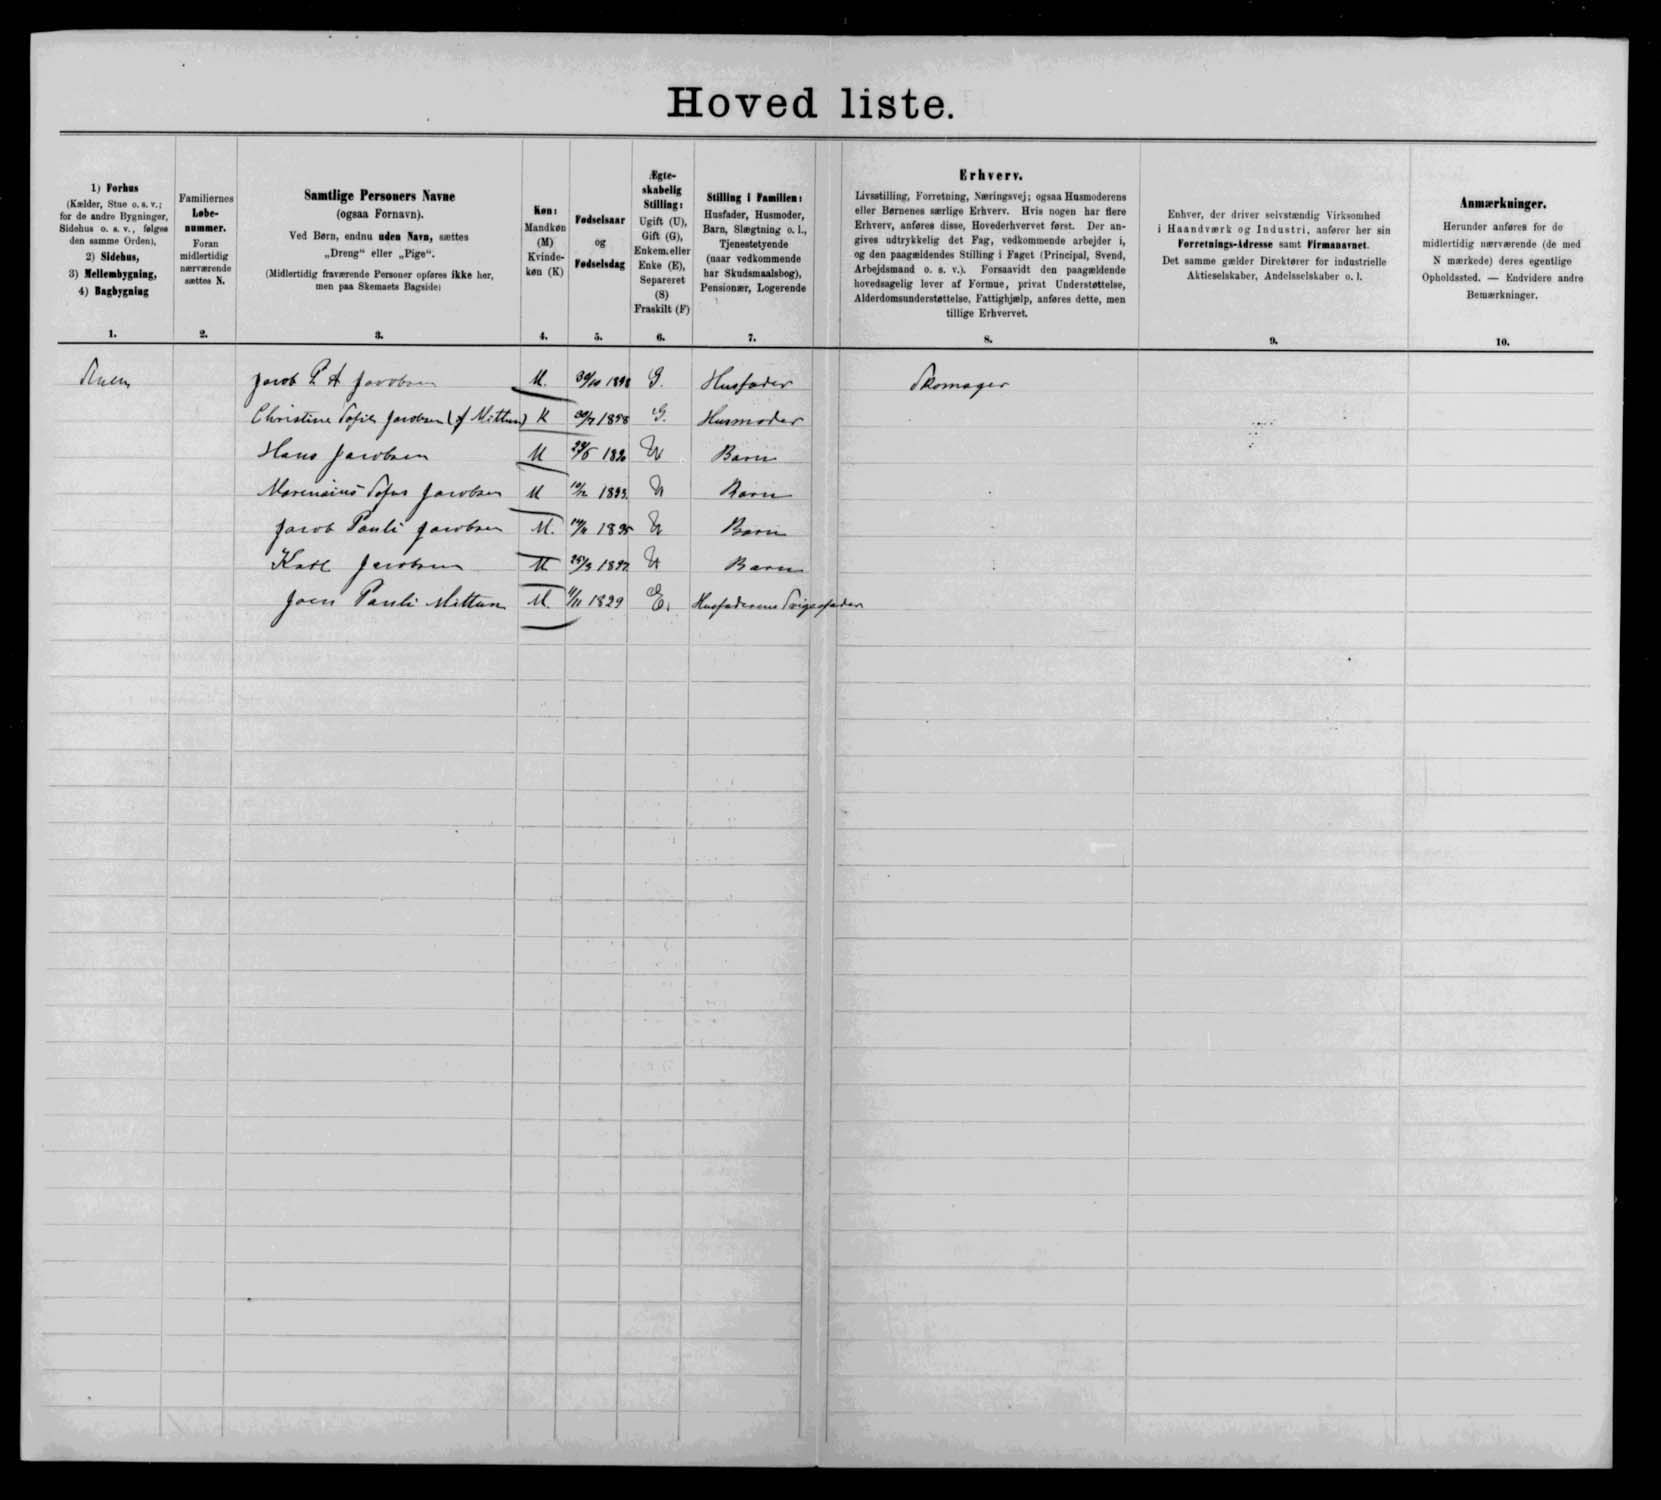 Hoved liste.
1) Forhus
(Kælder, Stue o. s. v.;
for de andre Bygninger,
Sidehus o. s. v., følges
den samme Orden),
2) Sidehus,
3) Mellembygning,
4) Bagbygning
1.
Familiernes
Løbe-
nummer.
Foran
midlertidig
nærværende
sættes N.
2.
Samtlige Personers Navne
(ogsaa Fornavn).
Ved Børn, endnu uden Navn, sættes
„Dreng“ eller „Pige“.
(Midlertidig fraværende Personer opføres ikke her,
men paa Skemaets Bagside)
3.
Køn:
Mandkøn
(M)
Kvinde-
køn (K)
4.
Fødselsaar
og
Fødselsdag
5.
Ægte-
skabelig
Stilling:
Ugift (U),
Gift (G),
Enkem. eller
Enke (E),
Separeret
(S)
Fraskilt (F)
6.
Stilling i Familien:
Husfader, Husmoder,
Barn, Slægtning o. l.,
Tjenestetyende
(naar vedkommende
har Skudsmaalsbog),
Pensionær, Logerende
7.
Erhverv.
Livsstilling, Forretning, Næringsvej; ogsaa Husmoderens
eller Børnenes særlige Erhverv. Hvis nogen har flere
Erhverv, anføres disse, Hovederhvervet først. Der an-
gives udtrykkelig det Fag, vedkommende arbejder i,
og den paagældendes Stilling i Faget (Principal, Svend,
Arbejdsmand o. s. v.). Forsaavidt den paagældende
hovedsagelig lever af Formue, privat Understøttelse,
Alderdomsunderstøttelse, Fattighjælp, anføres dette, men
tillige Erhvervet.
8.
Enhver, der driver selvstændig Virksomhed
i Haandværk og Industri, anfører her sin
Forretnings-Adresse samt Firmanavnet.
Det samme gælder Direktører for industrielle
Aktieselskaber, Andelsselskaber o. l.
9.
Anmærkninger.
Herunder anføres for de
midlertidig nærværende (de med
N mærkede) deres egentlige
Opholdssted. — Endvidere andre
Bemærkninger.
10.
Stuen Jacob P. A Jacobsen M. G. Husfader Skomager
Christine Sofie Jacobsen (f Mittun) K 1858 G. Husmoder
Hans Jacobsen M U Barn
Marensius Sofus Jacobsen M U Barn
Jacob Pauli Jacobsen M. 1895 U Barn
Karl Jacobsen M U Barn
Joen Pauli Mittun M. 11/11 1829 E. Husfaderens Svigerfader